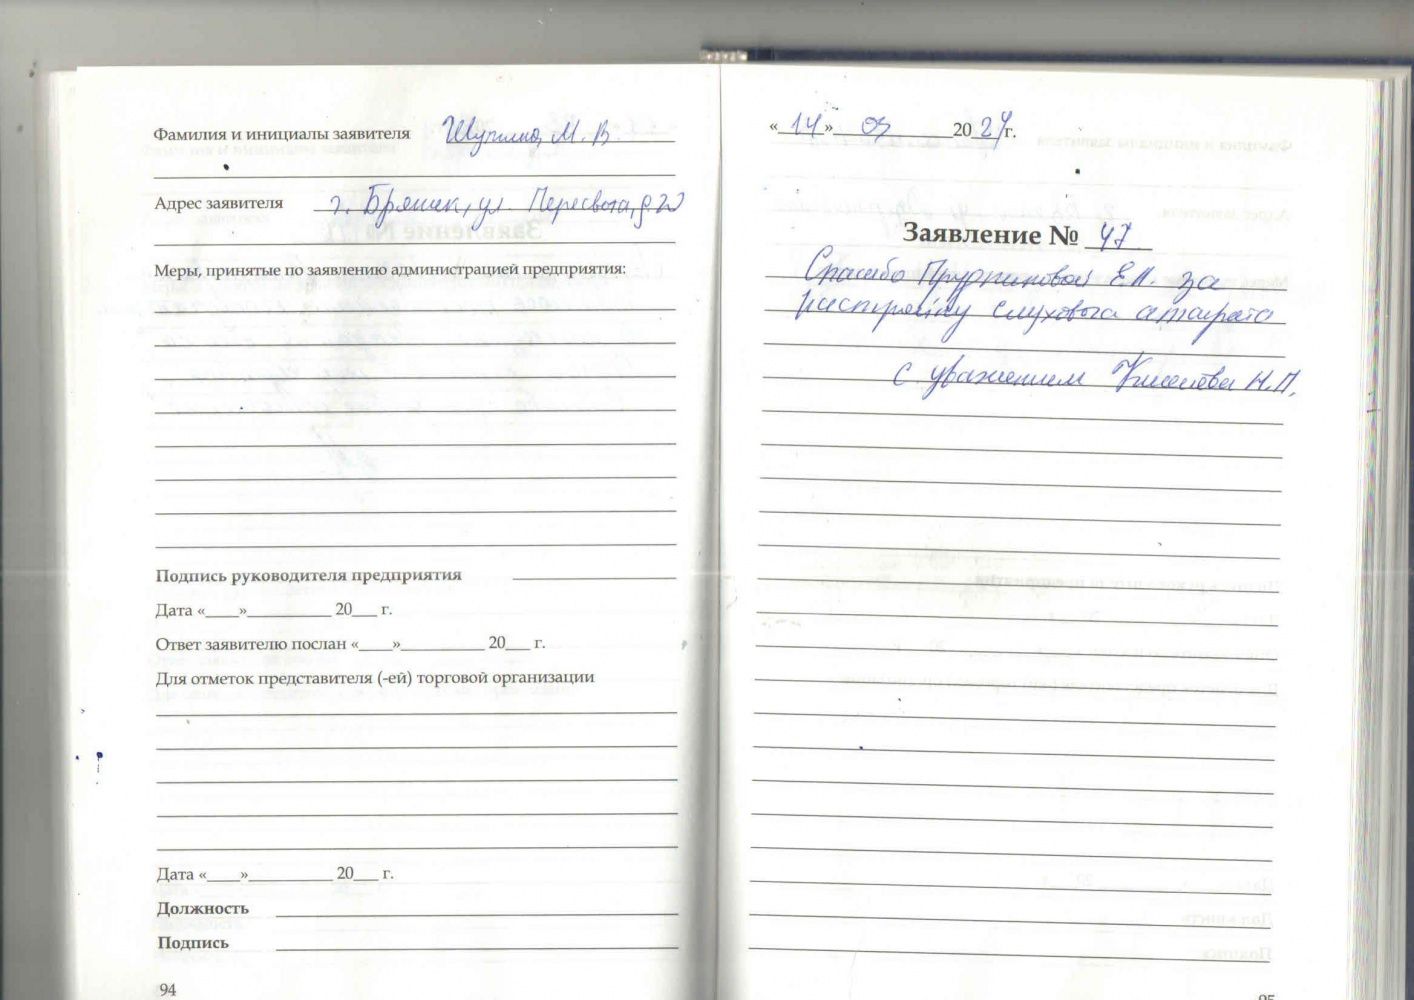 Фамилия и инициалы заявителя М. В.
Адрес заявителя г. Брянск, ул. Пересвета, д 20
Меры, принятые по заявлению администрацией предприятия:
Подпись руководителя предприятия
Дата «____»__________ 20___ г.
Ответ заявителю послан «____»__________ 20___ г.
Для отметок представителя (-ей) торговой организации
Дата «____»__________ 20___ г.
Должность
Подпись
94
«14» 03 2024г.
Заявление № 47
Спасибо Прудниковой Е.П. за
настройку слухового аппарата
С уважением Киселёва Н.П.
95